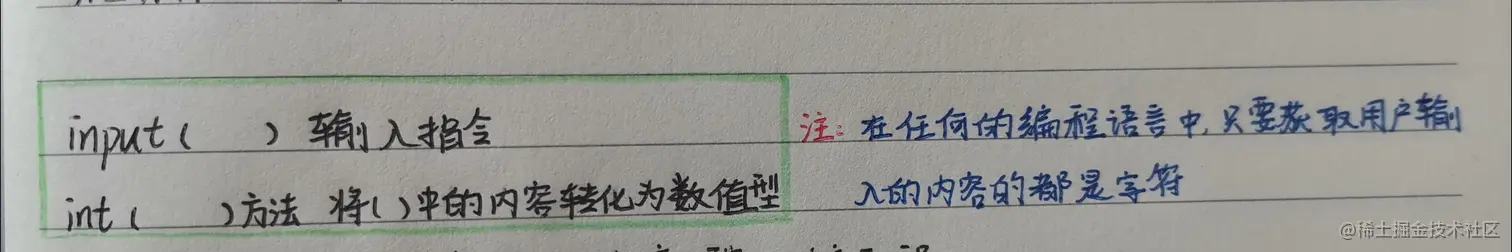 input(      ) 输入指令
注: 在任何的编程语言中,只要获取用户输
int(      )方法 将( )中的内容转化为数值型
入的内容的都是字符
@稀土掘金技术社区